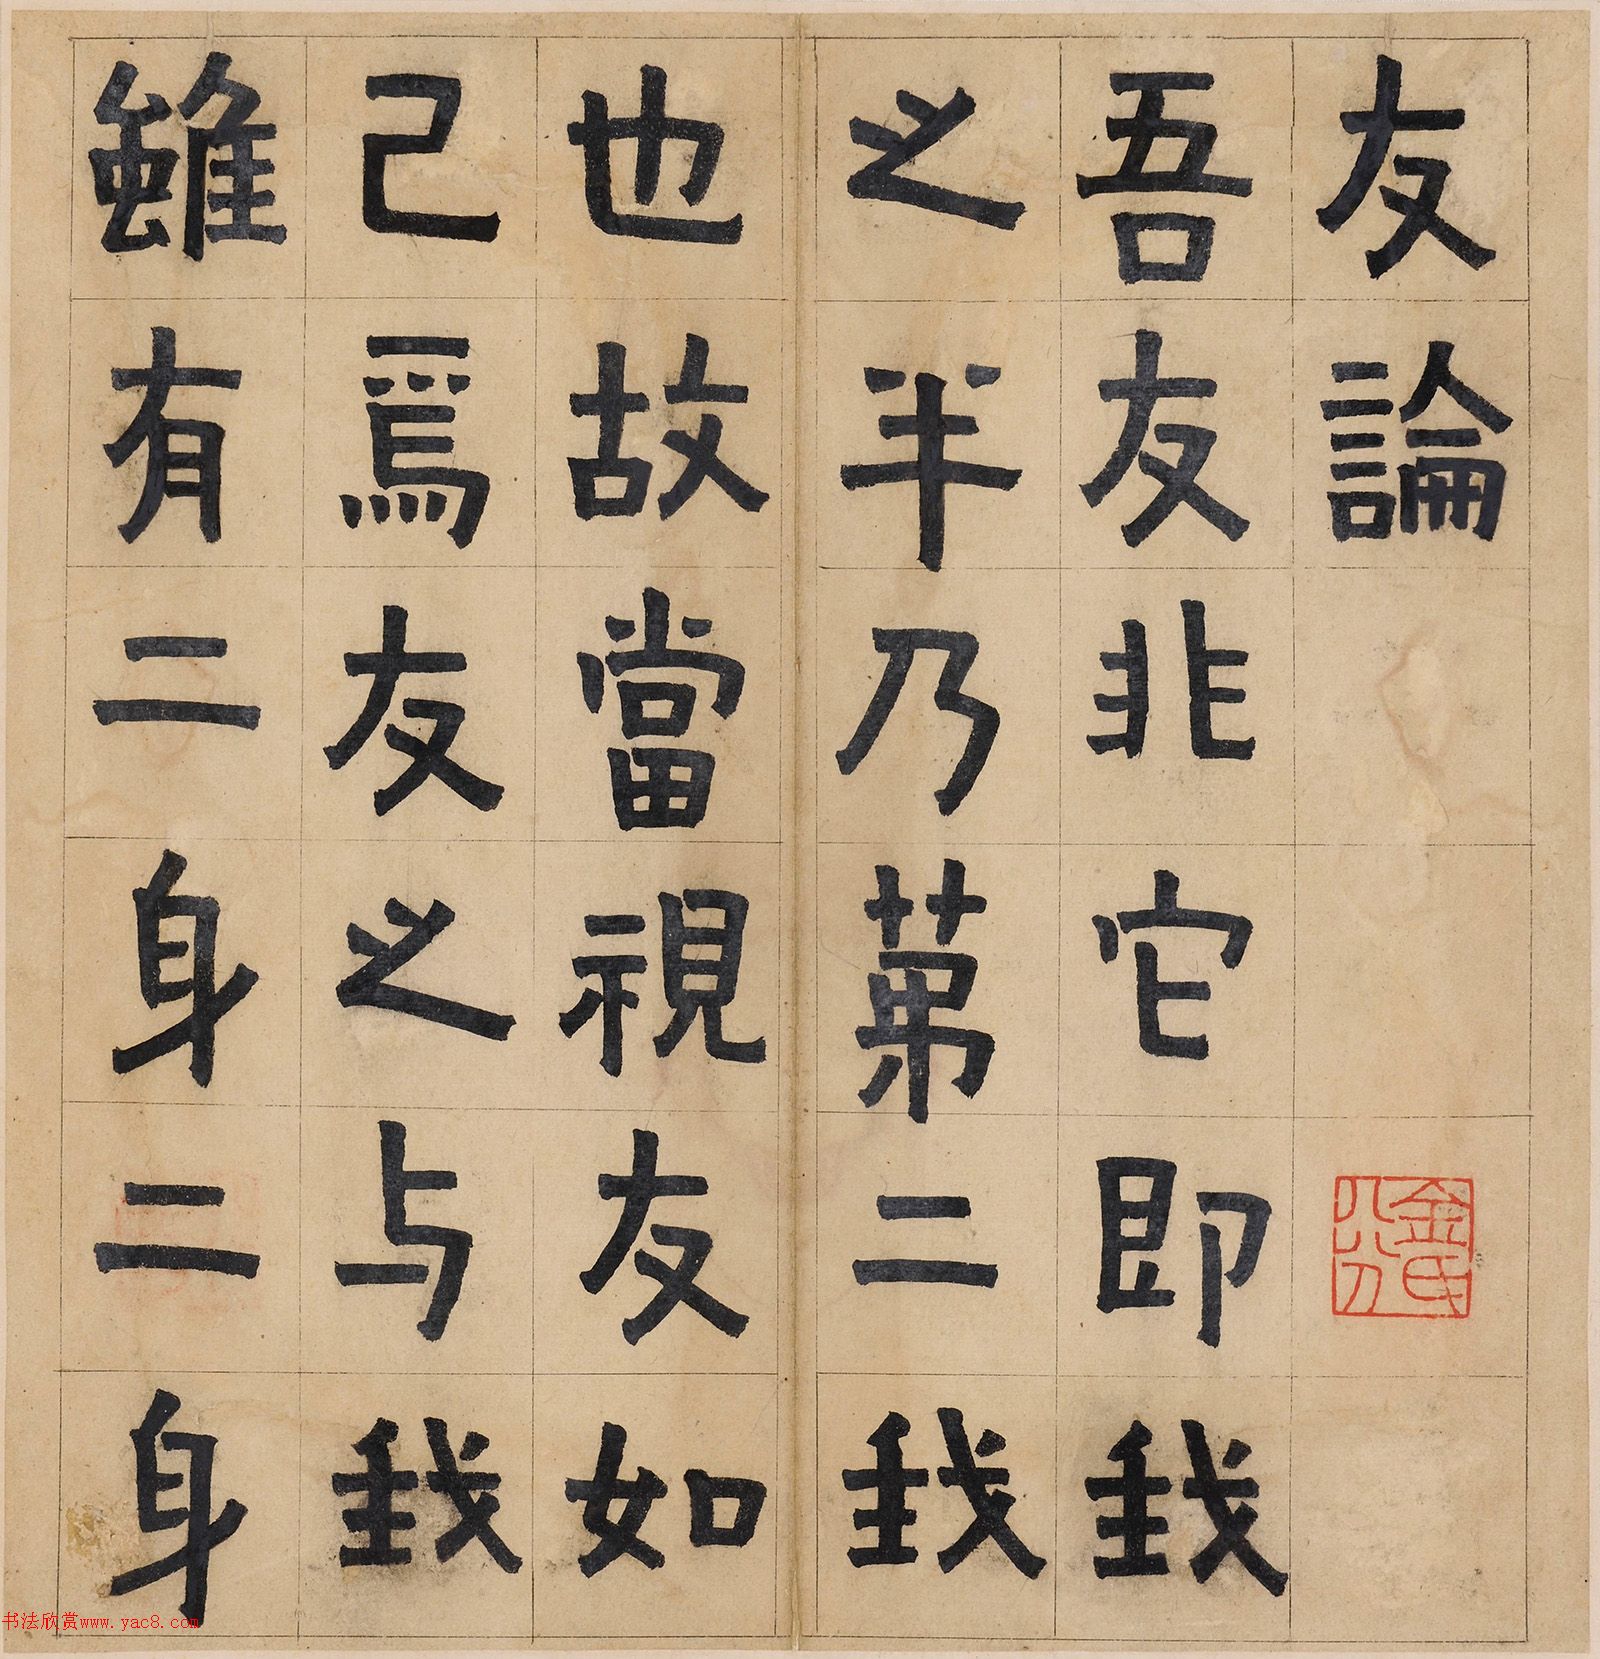 友論
吾友非它即我
之半乃苐二我
也故當視友如
己焉友之与我
雖有二身二身
金氏八分
书法欣赏www.yac8.com